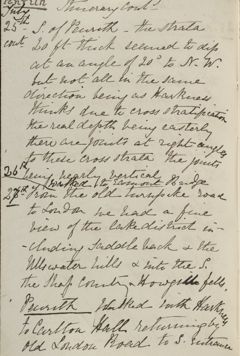 Penrith Itinerary Cont^d
July
25th S. of Penrith - the strata
cont 20 ft thick seemed to dip
at an angle of 20° to N.W.
but not all in the same
direction being as Harkness
thinks due to cross stratification
the real depth being easterly
there are joints at right angles
to these cross strata the joints
being nearly vertical
26th Walked to Eamont Bridge
27th From the old turnpike road
to London we had a fine
view of the Lake district in-
-cluding Saddleback & the
Ulleswater hills & into the S.
the Shap Country & Howgill fells.
Penrith - Walked with Harkness
to Carlton Hall returning by
old London Road to S. entrance